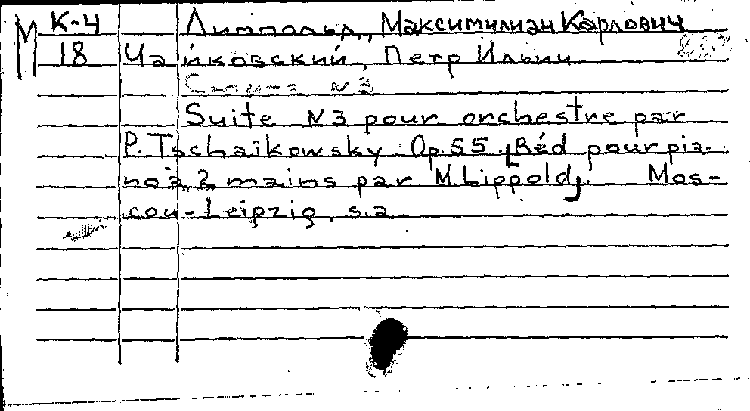 М К-4 Липпольд, Максимилиан Карлович
18 Чайковский, Петр Ильич
Сюита N3
Suite N3 pour orchestre par
P. Tschaïkowsky Op. 55. [Réd pour pia-
no à 2 mains par M. Lippold]. Mos-
cou-Leipzig, s.a.